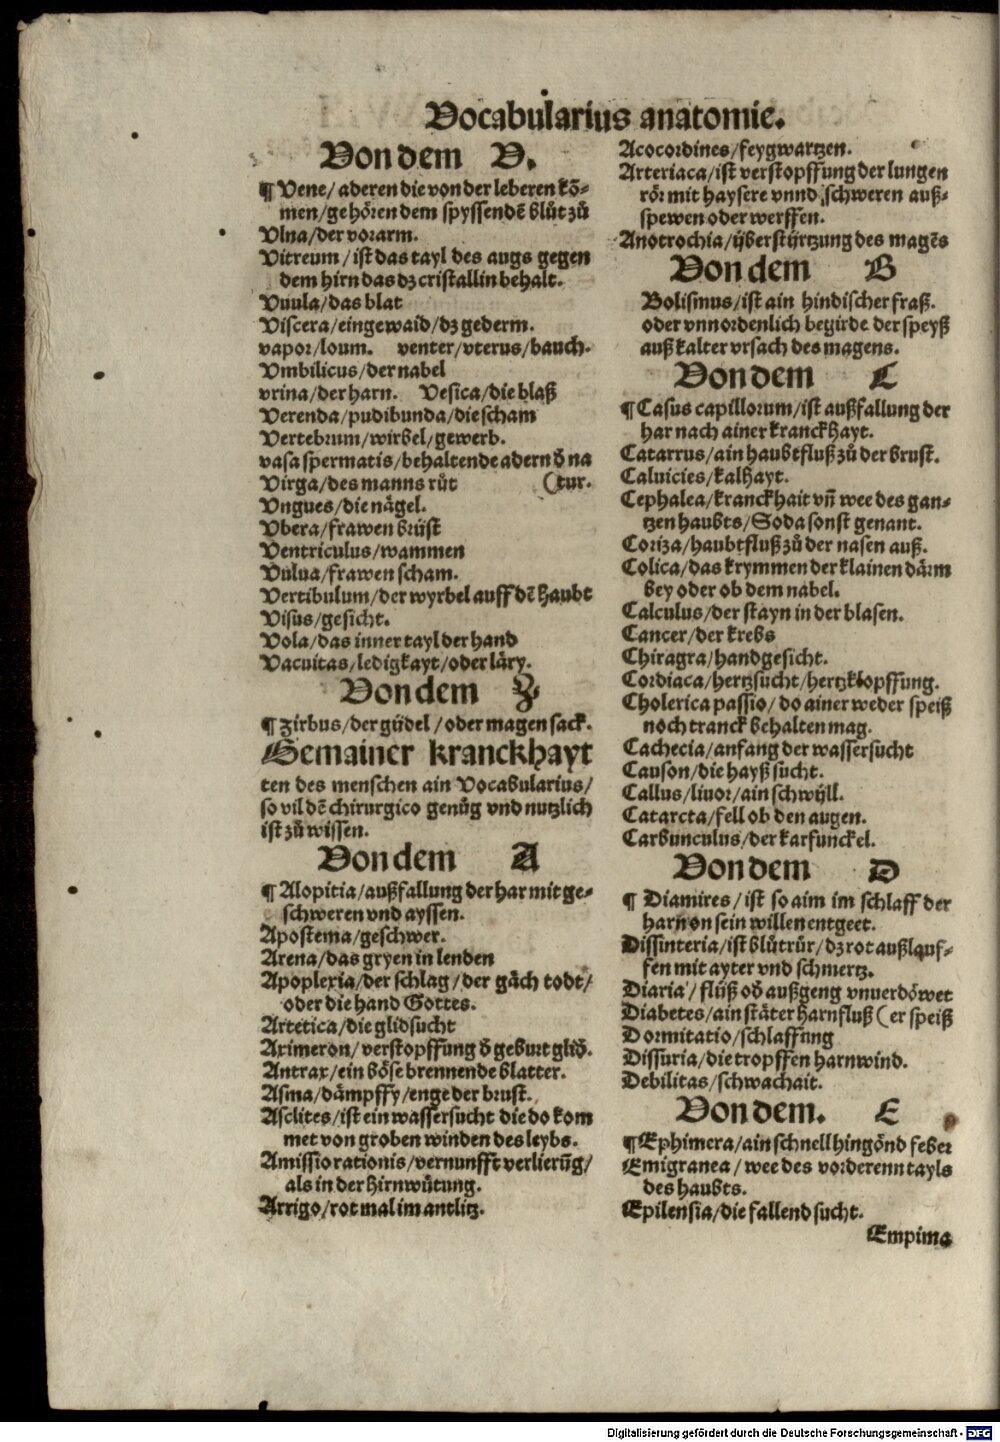 Vocabularius anatomie.
Von dem V.
¶ Vene/ aderen die von der leberen kõ-
men/gehören dem spyssendẽ blůt zů
Vlna/der vorarm.
Vitreum/ist das tayl des augs gegen
dem hirn das dz cristallin behalt.
Vuula/das blat
Viscera/eingewaid/dz gederm.
vapor/loum. venter/vterus/bauch.
Vmbilicus/der nabel
vrina/der harn. Vesica/die blaß
Verenda/pudibunda/die scham
Vertebrum/wirbel/gewerb.
vasa spermatis/behaltende adern d̄ na
Virga/des manns růt (tur.
Vngues/die nägel.
Vbera/frawen brüst
Ventriculus/wammen
Vulua/frawen scham.
Vertibulum/der wyrbel auff dẽ haubt
Visus/gesicht.
Vola/das inner tayl der hand
Vacuitas/ledigkayt/oder läry.
Von dem Z.
¶ Zirbus/der güdel/oder magen sack.
Gemainer kranckhayt
ten des menschen ain Vocabularius/
so vil dẽ chirurgico genůg vnd nutzlich
ist zů wissen.
Von dem A
¶ Alopitia/außfallung der har mit ge-
schweren vnd ayssen.
Apostema/geschwer.
Arena/das gryen in lenden
Apoplexia/der schlag/der gäch todt/
oder die hand Gottes.
Artetica/die glidsucht
Aximeron/verstopffung d̄ geburt glid̄.
Antrax/ein böse brennende blatter.
Asma/dämpffy/enge der brust.
Asclites/ist ein wassersucht die do kom
met von groben winden des leybs.
Amissio rationis/vernunfft verlierũg/
als in der hirnwůtung.
Arrigo/rot mal im antlitz.
Acocordines/feygwartzen.
Arteriaca/ist verstopffung der lungen
rör mit haysere vnnd schweren auß-
spewen oder werffen.
Anotrochia/überstürtzung des magẽs
Von dem B
Bolismus/ist ain hindischer fraß.
oder vnnordenlich begirde der speyß
auß kalter vrsach des magens.
Von dem C
¶ Casus capillorum/ist außfallung der
har nach ainer kranckhayt.
Catarrus/ain haubtfluß zů der brust.
Caluicies/kalhayt.
Cephalea/kranckhait vñ wee des gan-
tzen haubts/Soda sonst genant.
Coriza/haubtfluß zů der nasen auß.
Colica/das krymmen der klainen därm
bey oder ob dem nabel.
Calculus/der stayn in der blasen.
Cancer/der krebs
Chiragra/handgesicht.
Cordiaca/hertzsucht/hertzklopffung.
Cholerica passio/do ainer weder speiß
noch tranck behalten mag.
Cachecia/anfang der wassersucht
Causon/die hayß sucht.
Callus/liuor/ain schwyll.
Catarcta/fell ob den augen.
Carbunculus/der karfunckel.
Von dem D
¶ Diamires/ist so aim im schlaff der
harn on sein willen entgeet.
Dissinteria/ist blůtrůr/dz rot außlauf-
fen mit ayter vnd schmertz.
Diaria/flüß od̄ außgeng vnuerdöwet
Diabetes/ain stäter harnfluß (er speiß
Dormitatio/schlaffung
Dissuria/die tropffen harnwind.
Debilitas/schwachait.
Von dem. E
¶ Ephimera/ain schnell hingönd feber
Emigranea/wee des vorderenn tayls
des haubts.
Epilensia/die fallend sucht.
Empima
Digitalisierung gefördert durch die Deutsche Forschungsgemeinschaft - DFG